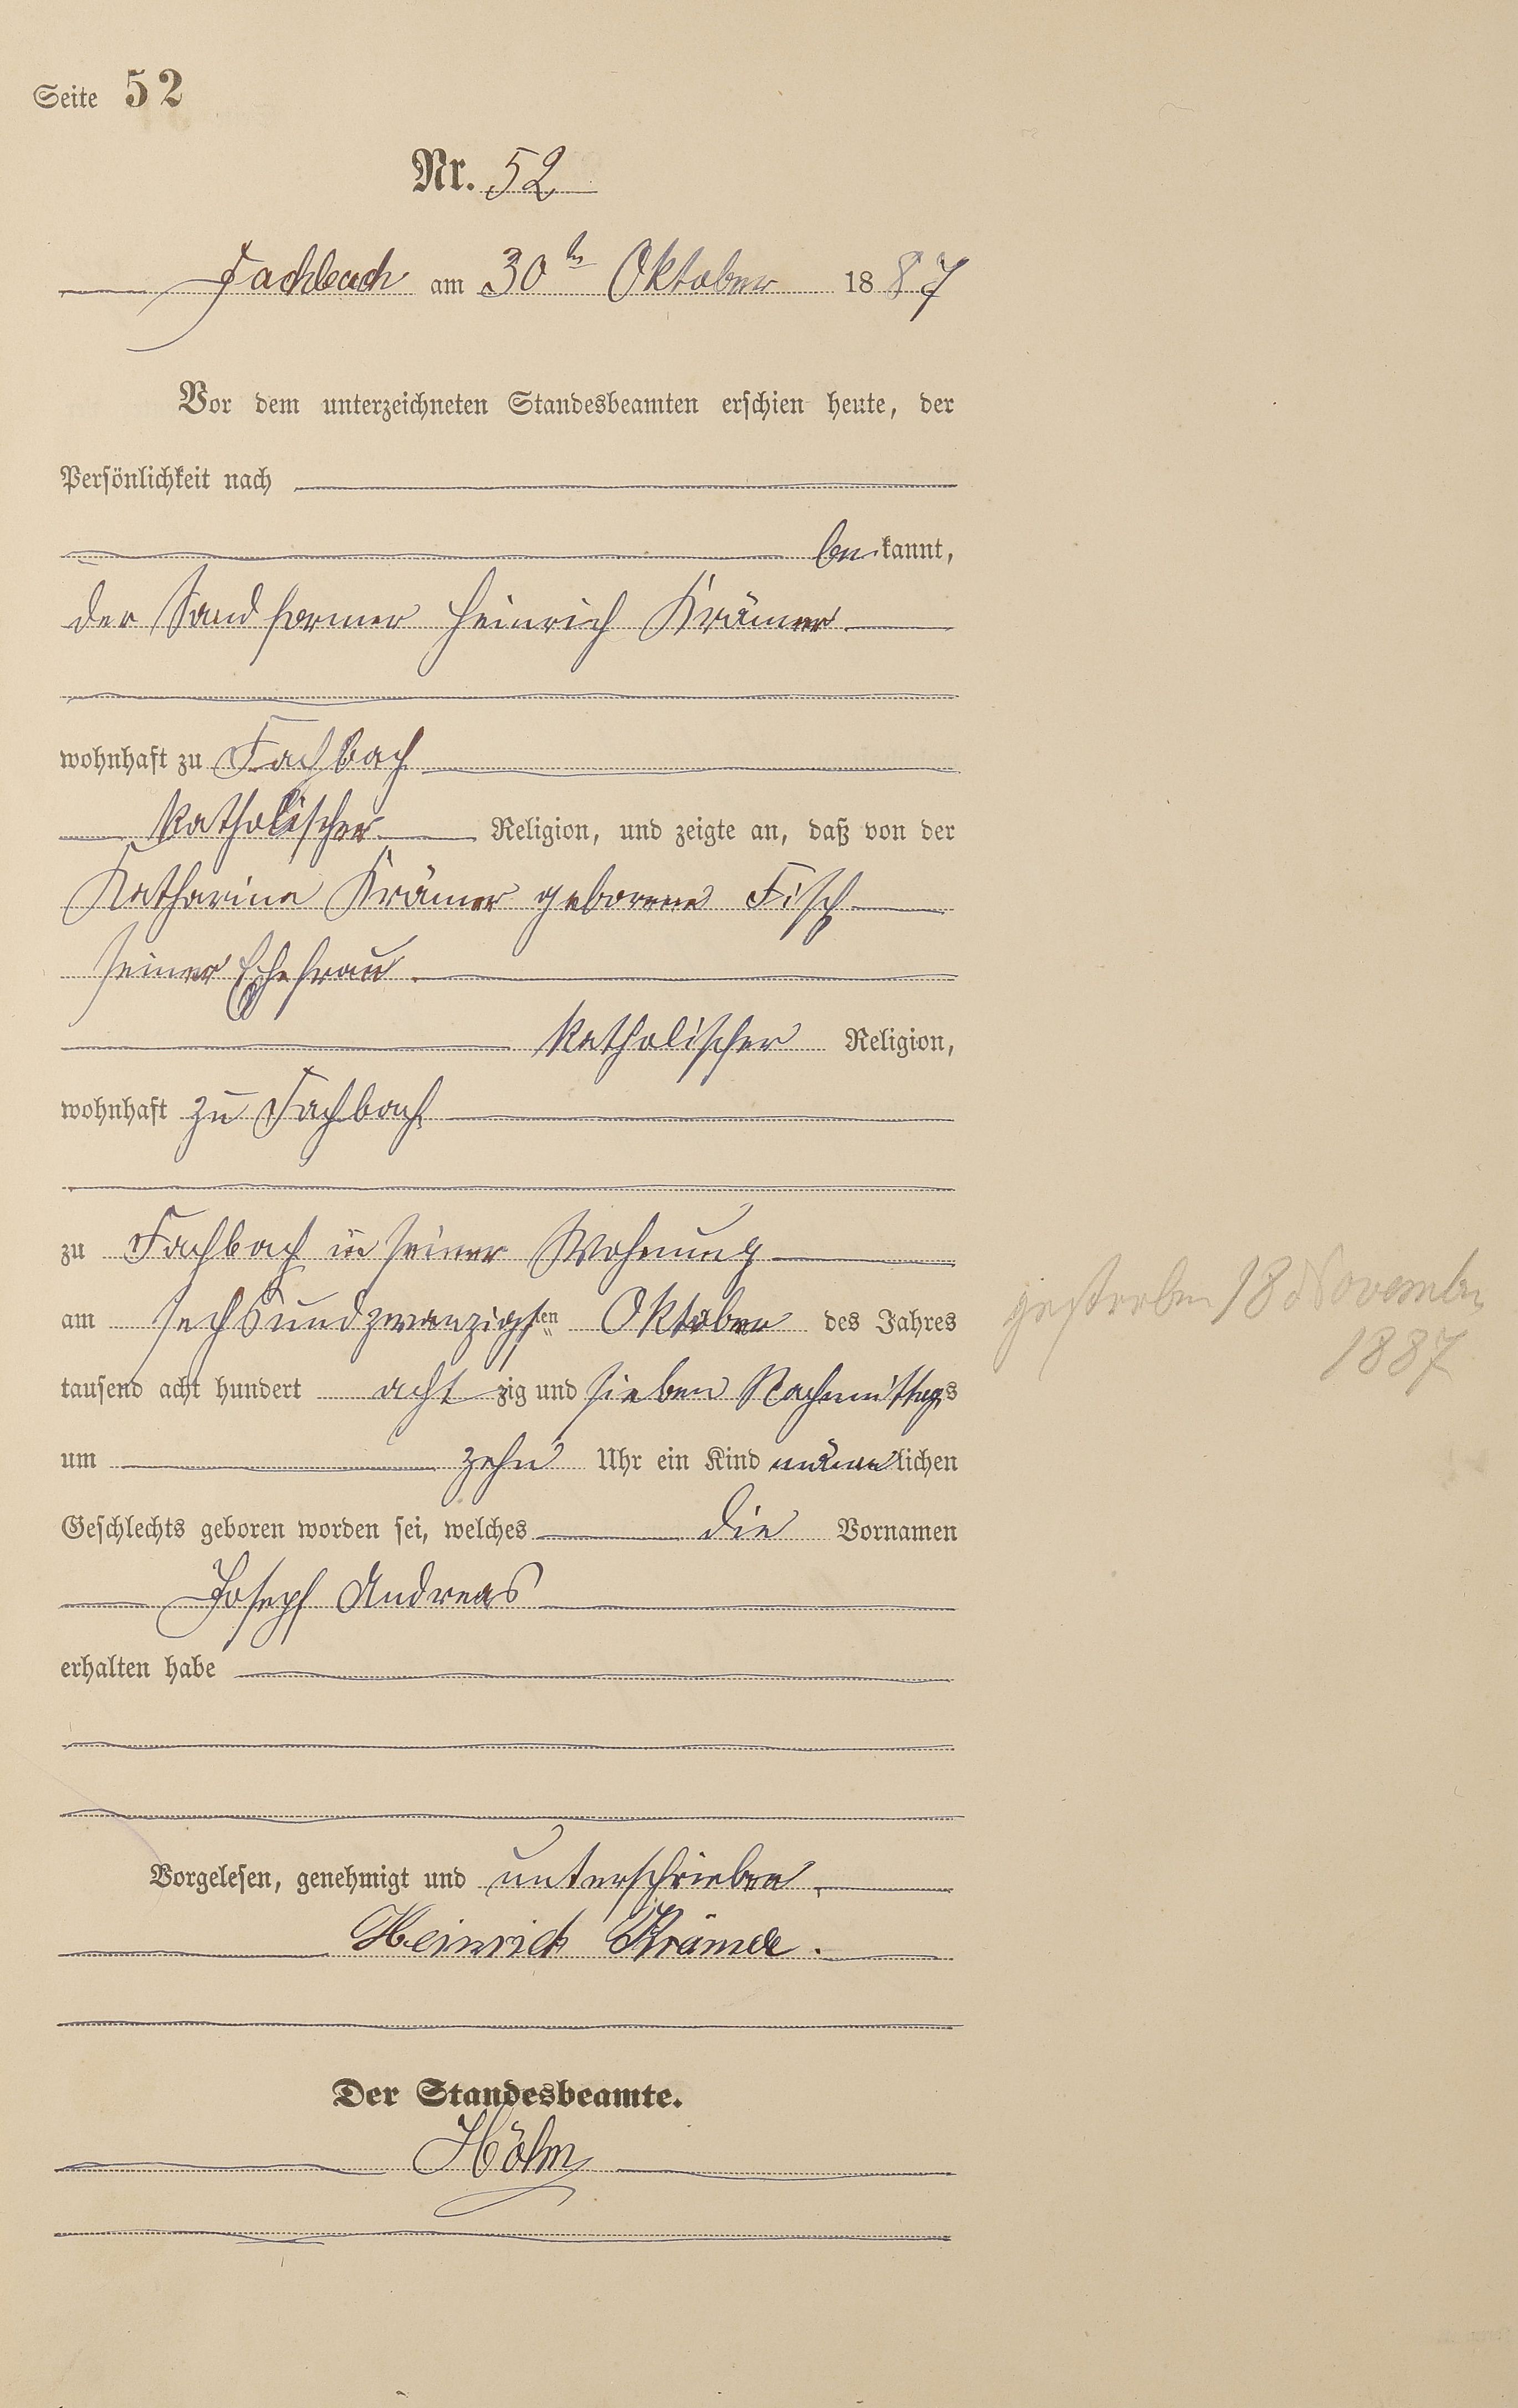 Seite 52
Nr. 52
Fachbach am 30ten Oktober 1887
Vor dem unterzeichneten Standesbeamten erschien heute, der
Persönlichkeit nach
bekannt,
der Sandformer Heinrich Krämer
wohnhaft zu Fachbach
katholischer Religion, und zeigte an, daß von der
Katharina Krämer geborene Fisch
seiner Ehefrau
katholischer Religion,
wohnhaft zu Fachbach
zu Fachbach in seiner Wohnung
am sechsundzwanzigsten Oktober des Jahres
tausend acht hundert achtzig und sieben Nachmittags
um zehn Uhr ein Kind männlichen
Geschlechts geboren worden sei, welches die Vornamen
Joseph Andreas
erhalten habe
gestorben 18 November
1887
Vorgelesen, genehmigt und unterschrieben.
Heinrich Krämer.
Der Standesbeamte.